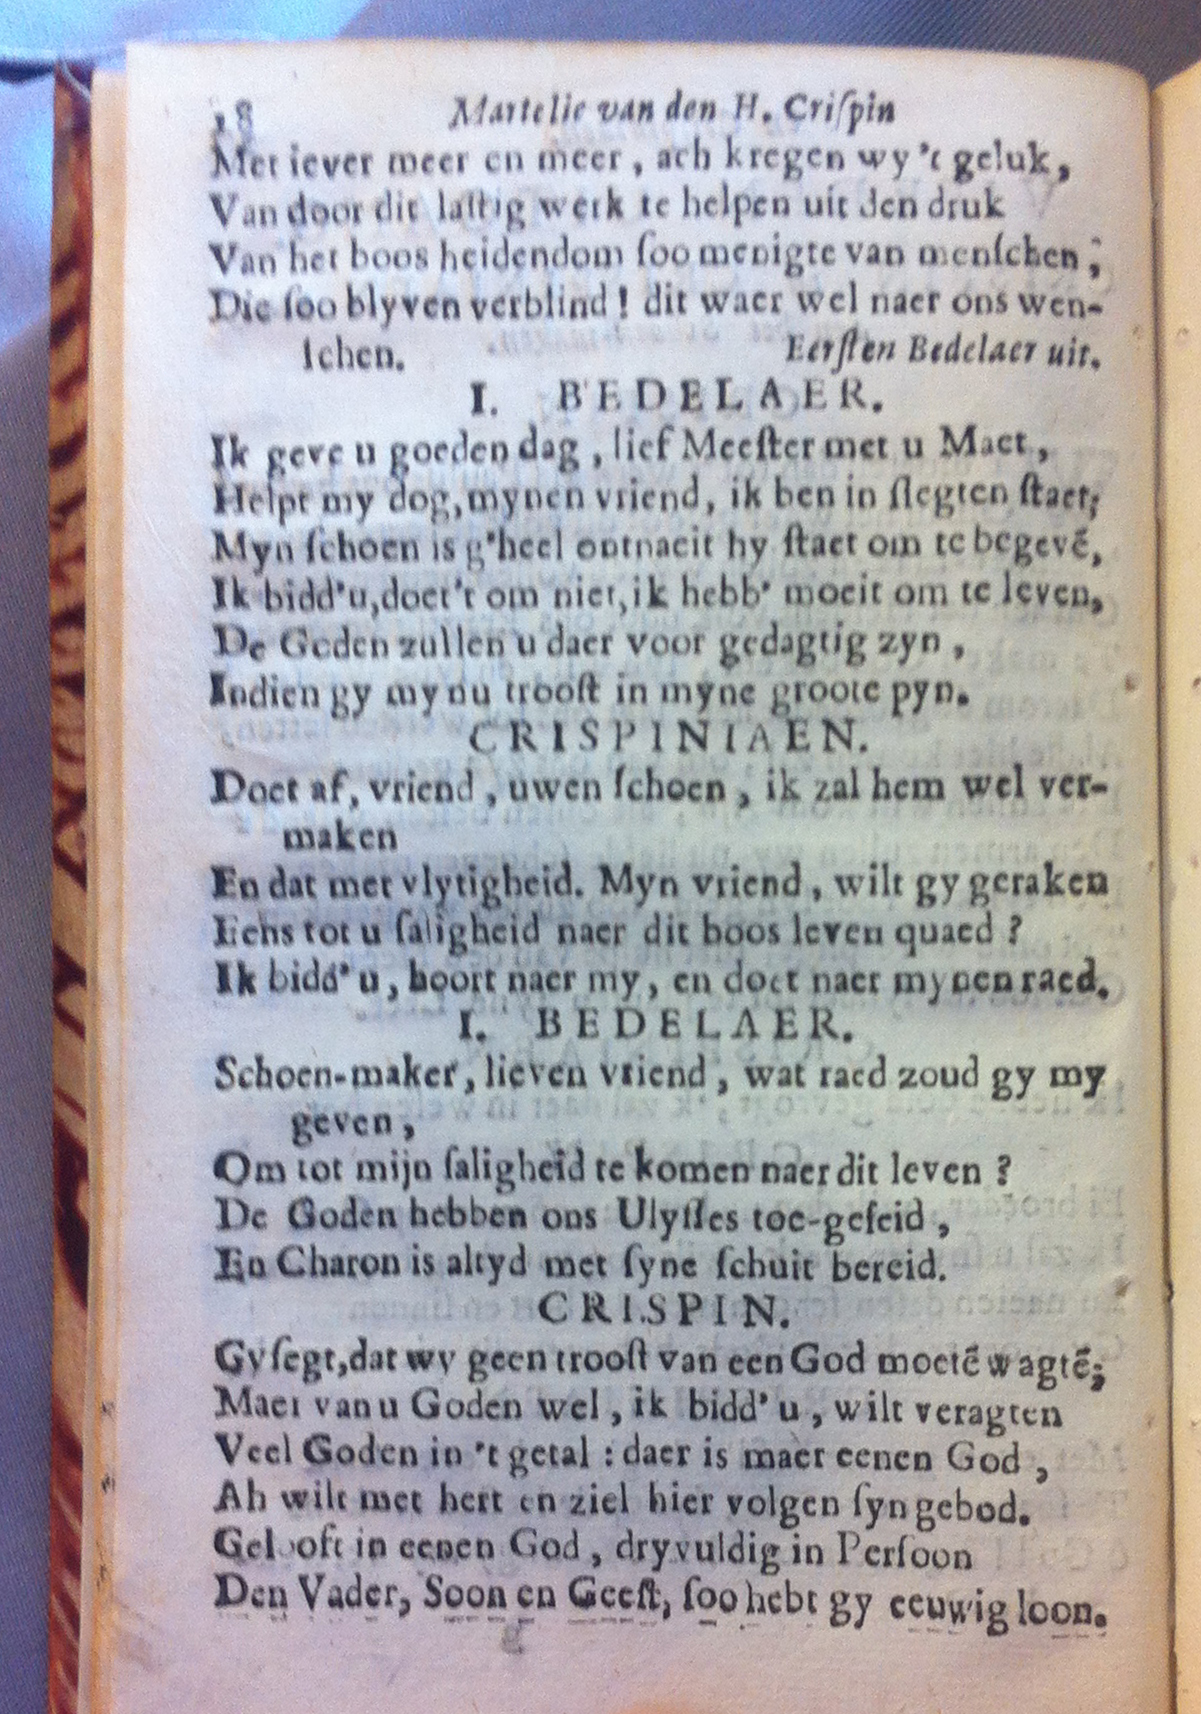 18 Martelie van den H. Criſpin
Met iever meer en meer, ach kregen wy 't geluk,
Van door dit laſtig werk te helpen uit den druk
Van het boos heidendom ſoo menigte van menſchen;
Die ſoo blyven verblind! dit waer wel naer ons wen-
ſchen. Eerſten Bedelaer uit.
I. BEDELAER.
Ik geve u goeden dag, lief Meeſter met u Maet,
Helpt my dog, mynen vriend, ik ben in ſlegten ſtaet;
Myn ſchoen is g'heel ontnaeit hy ſtaet om te begevē,
Ik bidd'u, doet't om niet, ik hebb' moeit om te leven,
De Goden zullen u daer voor gedagtig zyn,
Indien gy my nu trooſt in myne groote pyn.
CRISPINIAEN.
Doet af, vriend, uwen ſchoen, ik zal hem wel ver-
maken
En dat met vlytigheid. Myn vriend, wilt gy geraken
Eens tot u ſaligheid naer dit boos leven quaed?
Ik bidd' u, hoort naer my, en doet naer mynen raed.
I. BEDELAER.
Schoen-maker, lieven vriend, wat raed zoud gy my
geven,
Om tot mijn ſaligheid te komen naer dit leven?
De Goden hebben ons Ulyſſes toe-geſeid,
En Charon is altyd met ſyne ſchuit bereid.
CRISPIN.
Gy ſegt, dat wy geen trooſt van een God moetē wagtē;
Maer van u Goden wel, ik bidd' u, wilt veragten
Veel Goden in 't getal: daer is maer eenen God,
Ah wilt met hert en ziel hier volgen ſyn gebod.
Gelooft in eenen God, dryvuldig in Perſoon
Den Vader, Soon en Geeſt, ſoo hebt gy eeuwig loon.